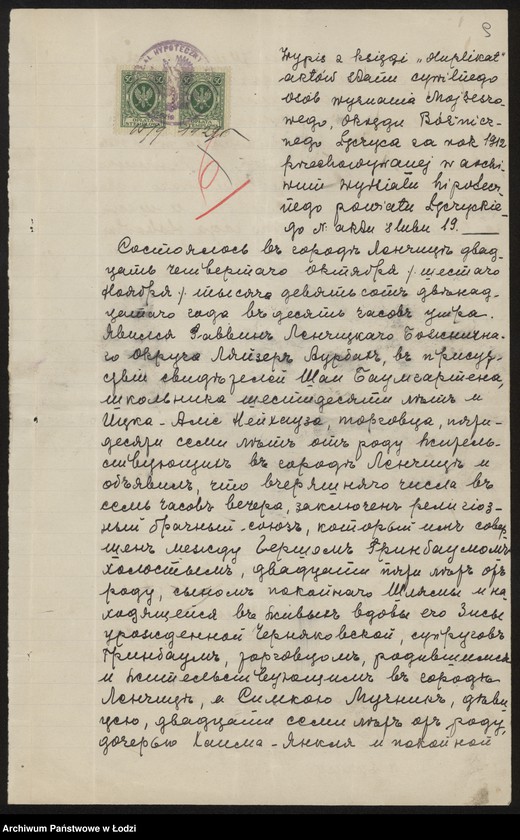 9
Wypis z księgi "Duplikat"
aktów stanu cywilnego
osób wyznania Mojżeszo-
wego, Okręgu Bóżnicz-
nego Łęczyca za rok 1912
przechowywanej w archi-
wum wydziału hipotecz-
nego powiatu Łęczyckie-
go N. aktu ślubu 19.
Состоялось въ городѣ Ленчицѣ двад-
цать четвертаго Октября /: шестаго
Ноября :/ тысяча девятьсотъ двѣнад-
цатаго года въ десять часовъ утра.
Явился Раввинъ Ленчицкаго Божнична-
го округа Ляйзеръ Аурбахъ, въ присут-
ствіи свидѣтелей Шаи Баумгартена,
школьника шестидесяти лѣтъ и
Ицка-Аліе Нейхауза, торговца, пяти-
десяти семи лѣтъ отъ роду житель-
ствующихъ въ городѣ Ленчицѣ и
объявилъ, что вчерашняго числа въ
семь часовъ вечера, заключенъ религіоз-
ный брачный союзъ, который имъ совер-
шенъ между Гершомъ Гринбаумомъ
холостымъ, двадцати пяти лѣтъ отъ
роду, сыномъ покойнаго Шлямы и на-
ходящейся въ живыхъ вдовы его Зисы
урожденной Черняковской, супруговъ
Гринбаумъ, торговцомъ, родившимся
и жительствующимъ въ городѣ
Ленчицѣ, а Симкою Мучникъ, дѣви-
цею, двадцати семи лѣтъ отъ роду,
дочерью Хаима-Янкля и покойной
Archiwum Państwowe w Łodzi